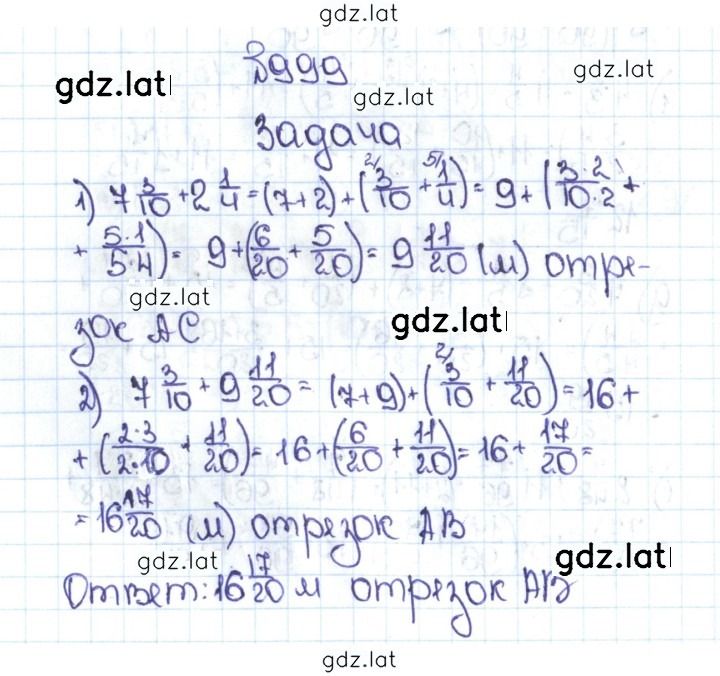 gdz.lat
999
gdz.lat
gdz.lat
gdz.lat
Задача
1) 7 3/10 + 2 1/4 = (7+2) + (2/ 3/10 + 5/ 1/4) = 9 + (3·2/10·2 +
+ 5·1/5·4) = 9 + (6/20 + 5/20) = 9 11/20 (м) отре-
gdz.lat
gdz.lat
зок АС
2) 7 3/10 + 9 11/20 = (7+9) + (2/ 3/10 + 11/20) = 16 +
+ (2·3/2·10 + 11/20) = 16 + (6/20 + 11/20) = 16 + 17/20 =
= 16 17/20 (м) отрезок АВ
gdz.lat
gdz.lat
Ответ: 16 17/20 м отрезок АВ
gdz.lat